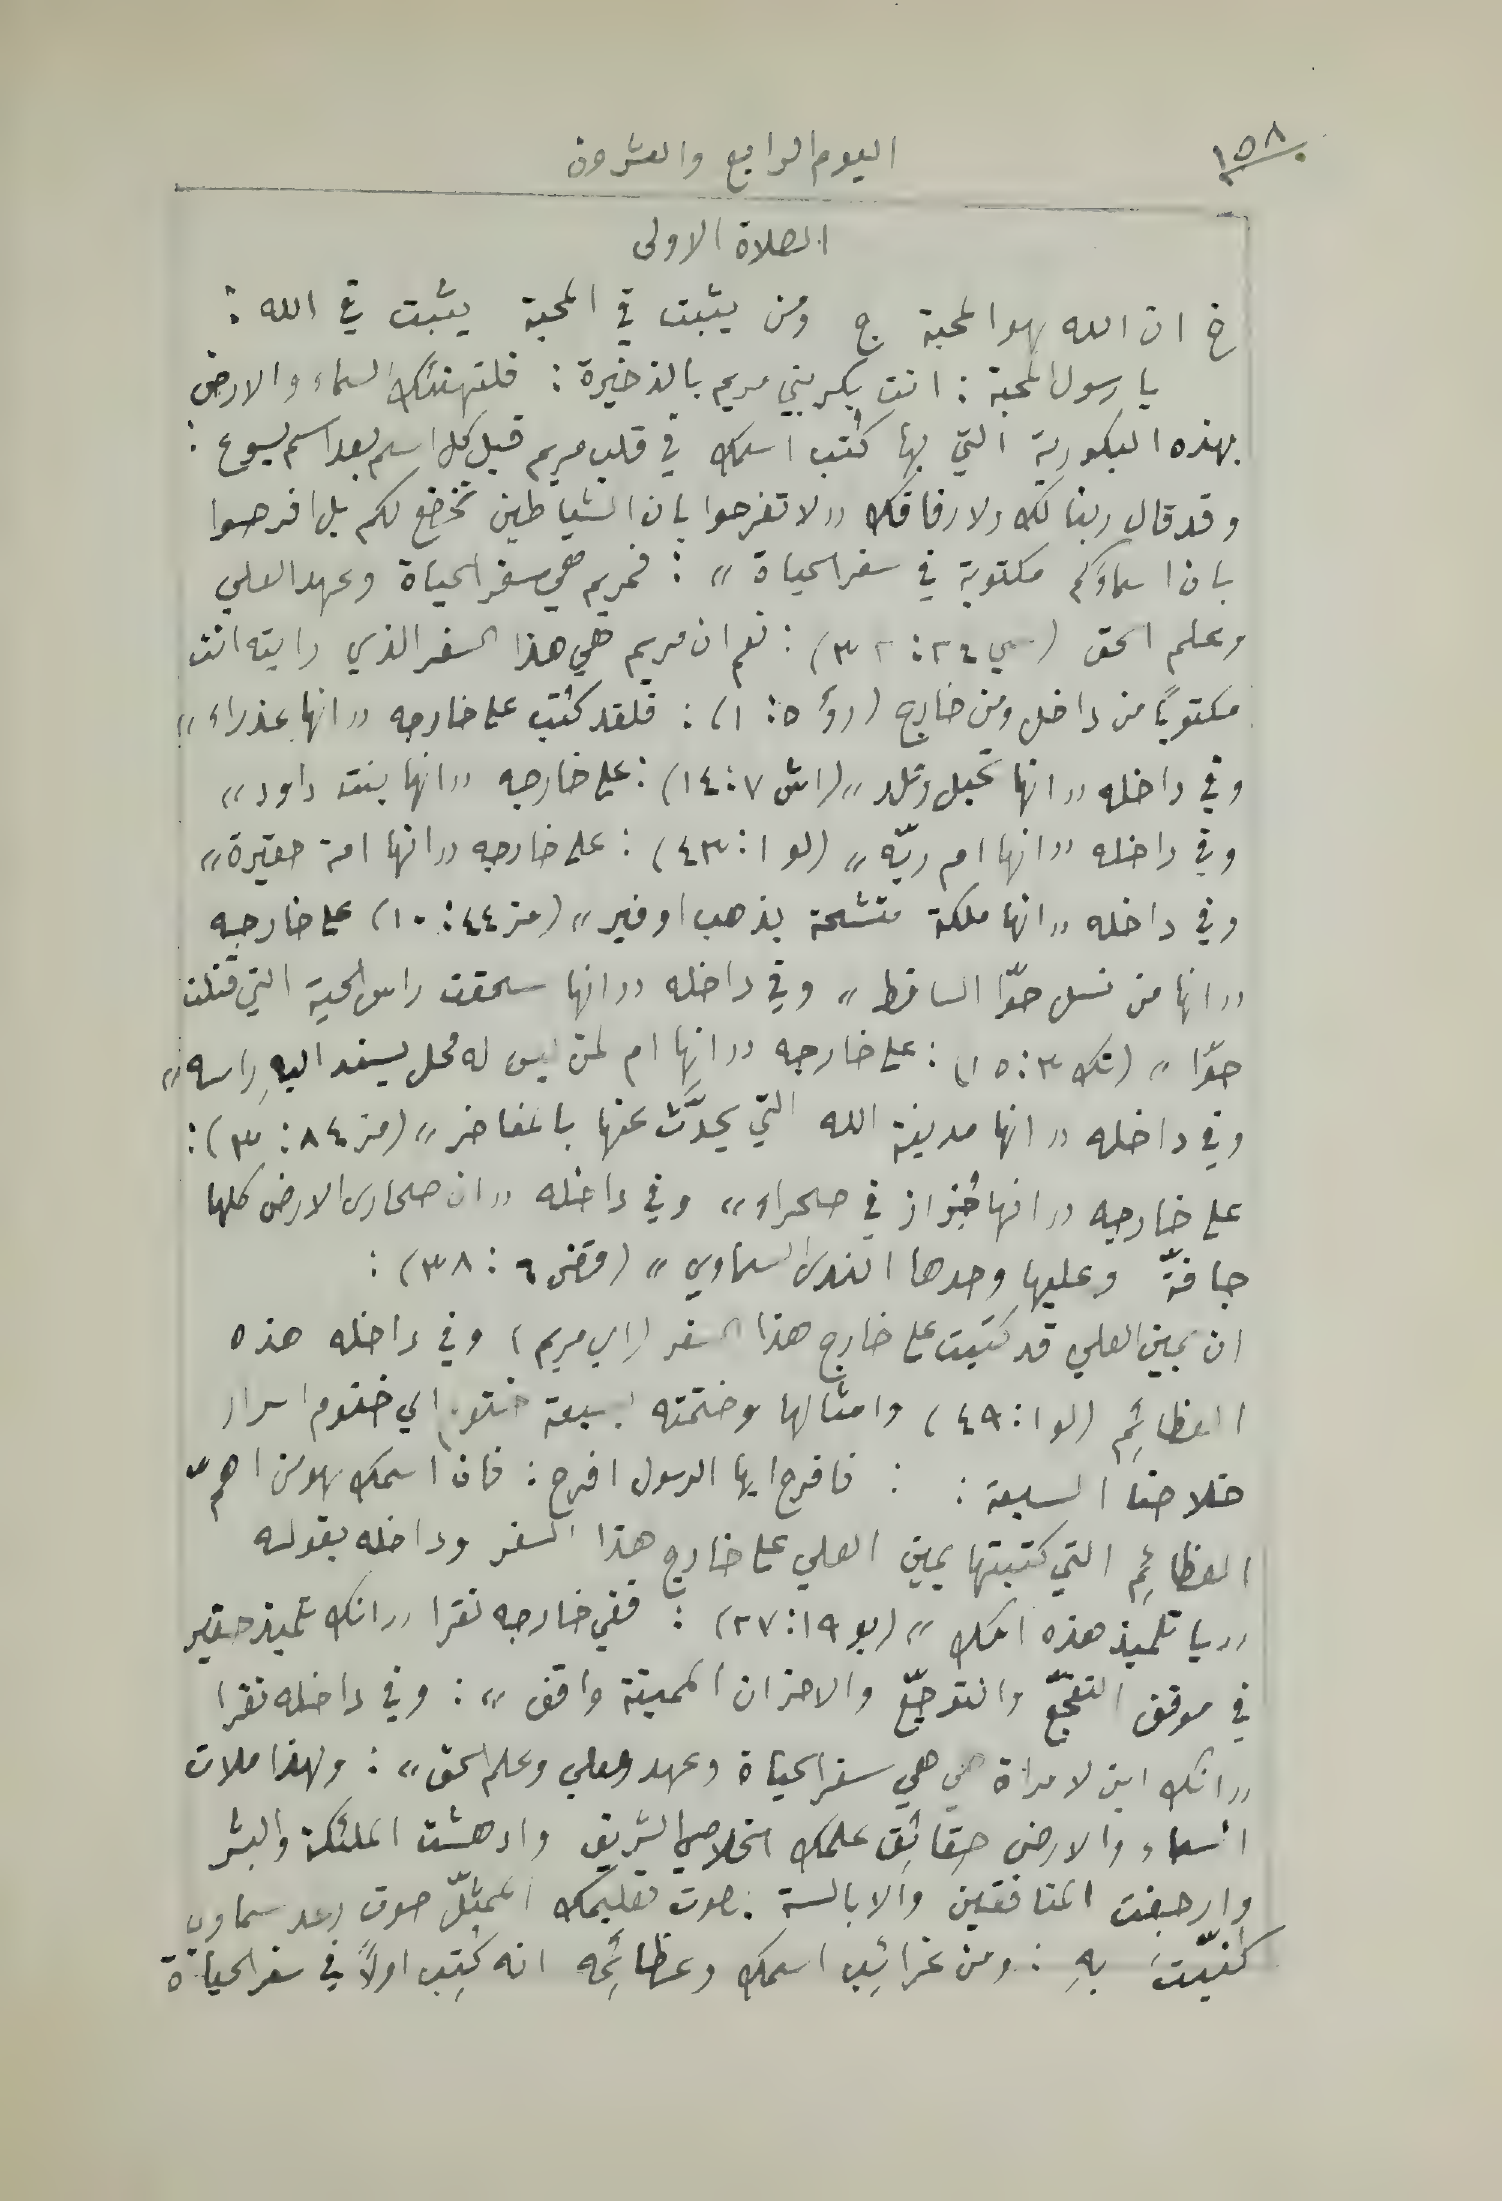 ١٥٨
اليوم الرابع والعشرون
الصلاة الاولى
خ ان الله هو المحبة ج ومن يثبت في المحبة يثبت في الله :
يا رسول المحبة : انت بكر بني مريم بالذخيرة : فلتهنئك السماء والارض
بهذه البكورية التي بها كُتب اسمك في قلب مريم قبل كل اسم بعد اسم يسوع :
وقد قال ربنا لك ولارفاقك «لا تفرحوا بان الشياطين تخضع لكم بل افرحوا
بان اسماؤكم مكتوبة في سفر الحياة» : فمريم هي سفر الحياة وعهد العلي
وعلم الحق (سي ٢٤: ٣٢) : نعم ان مريم هي هذا السفر الذي رايته انت
مكتوبًا من داخل ومن خارج (رؤ ٥: ١) : فلقد كُتب على خارجه «انها عذراء»
وفي داخله «انها تحبل وتلد» (اش ٧: ١٤) : على خارجه «انها بنت داود»
وفي داخله «انها ام ربّه» (لو ١: ٤٣) : على خارجه «انها امة حقيرة»
وفي داخله «انها ملكة متشحة بذهب اوفير» (مز ٤٤: ١٠) على خارجه
«انها من نسل حوّا الساقط» وفي داخله «انها سحقت راس الحية التي قتلت
حوّا» (تك ٣: ١٥) : على خارجه «انها ام لمن ليس له محل يسند اليهِ راسه»
وفي داخله «انها مدينة الله التي يحدَّث عنها بالمفاخر» (مز ٨٤: ٣) :
على خارجه «انها جُزاز في صحراء» وفي داخله «ان صحارى الارض كلها
جافّة وعليها وحدها الندى السماوي» (قض ٦: ٣٨) :
ان يمين العلي قد كتبت على خارج هذا السفر (اي مريم) وفي داخله هذه
العظائِم (لو ١: ٤٩) وامثالها وختمته بسبعة ختوم اي ختوم اسرار
خلاصنا السبعة : : فافرح ايها الرسول افرح : فان اسمك هو من اهمّ
العظائِم التي كتبتها يمين العلي على خارج هذا السفر وداخله بقوله
«يا تلميذ هذه امك» (يو ١٩: ٢٧) : ففي خارجه نقرا «انك تلميذ حقير
في موقف التفجّع والتوجّع والاحزان المميتة واقف» : وفي داخله نقرا
«انك ابن لامراة هي هي سفر الحياة وعهد العلي وعلم الحق» : ولهذا ملات
السماء والارض حقائِق علمك الخلاصي الشريف وادهشت الملئكة والبشر
وارجفت المنافقين والابالسة بصوت تعليمك الممثّل صوت رعد سماوي
كُنّيتَ بهِ : ومن غرائِب اسمك وعظائِمه انه كُتِب اولاً في سفر الحياة